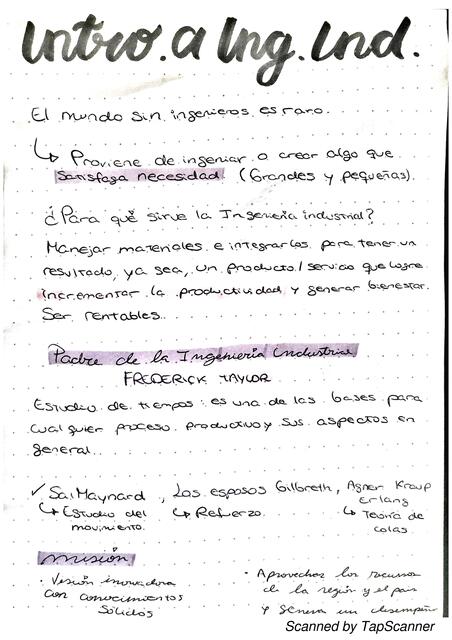 Intro. a Ing. Ind.
El mundo sin ingenieros es raro.
↳ Proviene de ingeniar o crear algo que
satisfaga necesidad (Grandes y pequeñas).
¿Para qué sirve la Ingeniería industrial?
Manejar materiales e integrarlos para tener un
resultado, ya sea, un producto/servicio que logre
incrementar la productividad y generar bienestar.
Ser rentables.
Padre de la Ingeniería Industrial
FREDERICK TAYLOR
Estudio de tiempos: es una de las bases para
cualquier proceso productivo y sus aspectos en
general.
✓ Sal Maynard, Los esposos Gilbreth, Agner Kraup
Erlang
↳ Estudio del ↳ Refuerzo. ↳ Teoría de
movimiento. colas
misión
· Visión innovadora · Aprovechar los recursos
con conocimientos de la región y el país
sólidos y genera un desempeño
Scanned by TapScanner